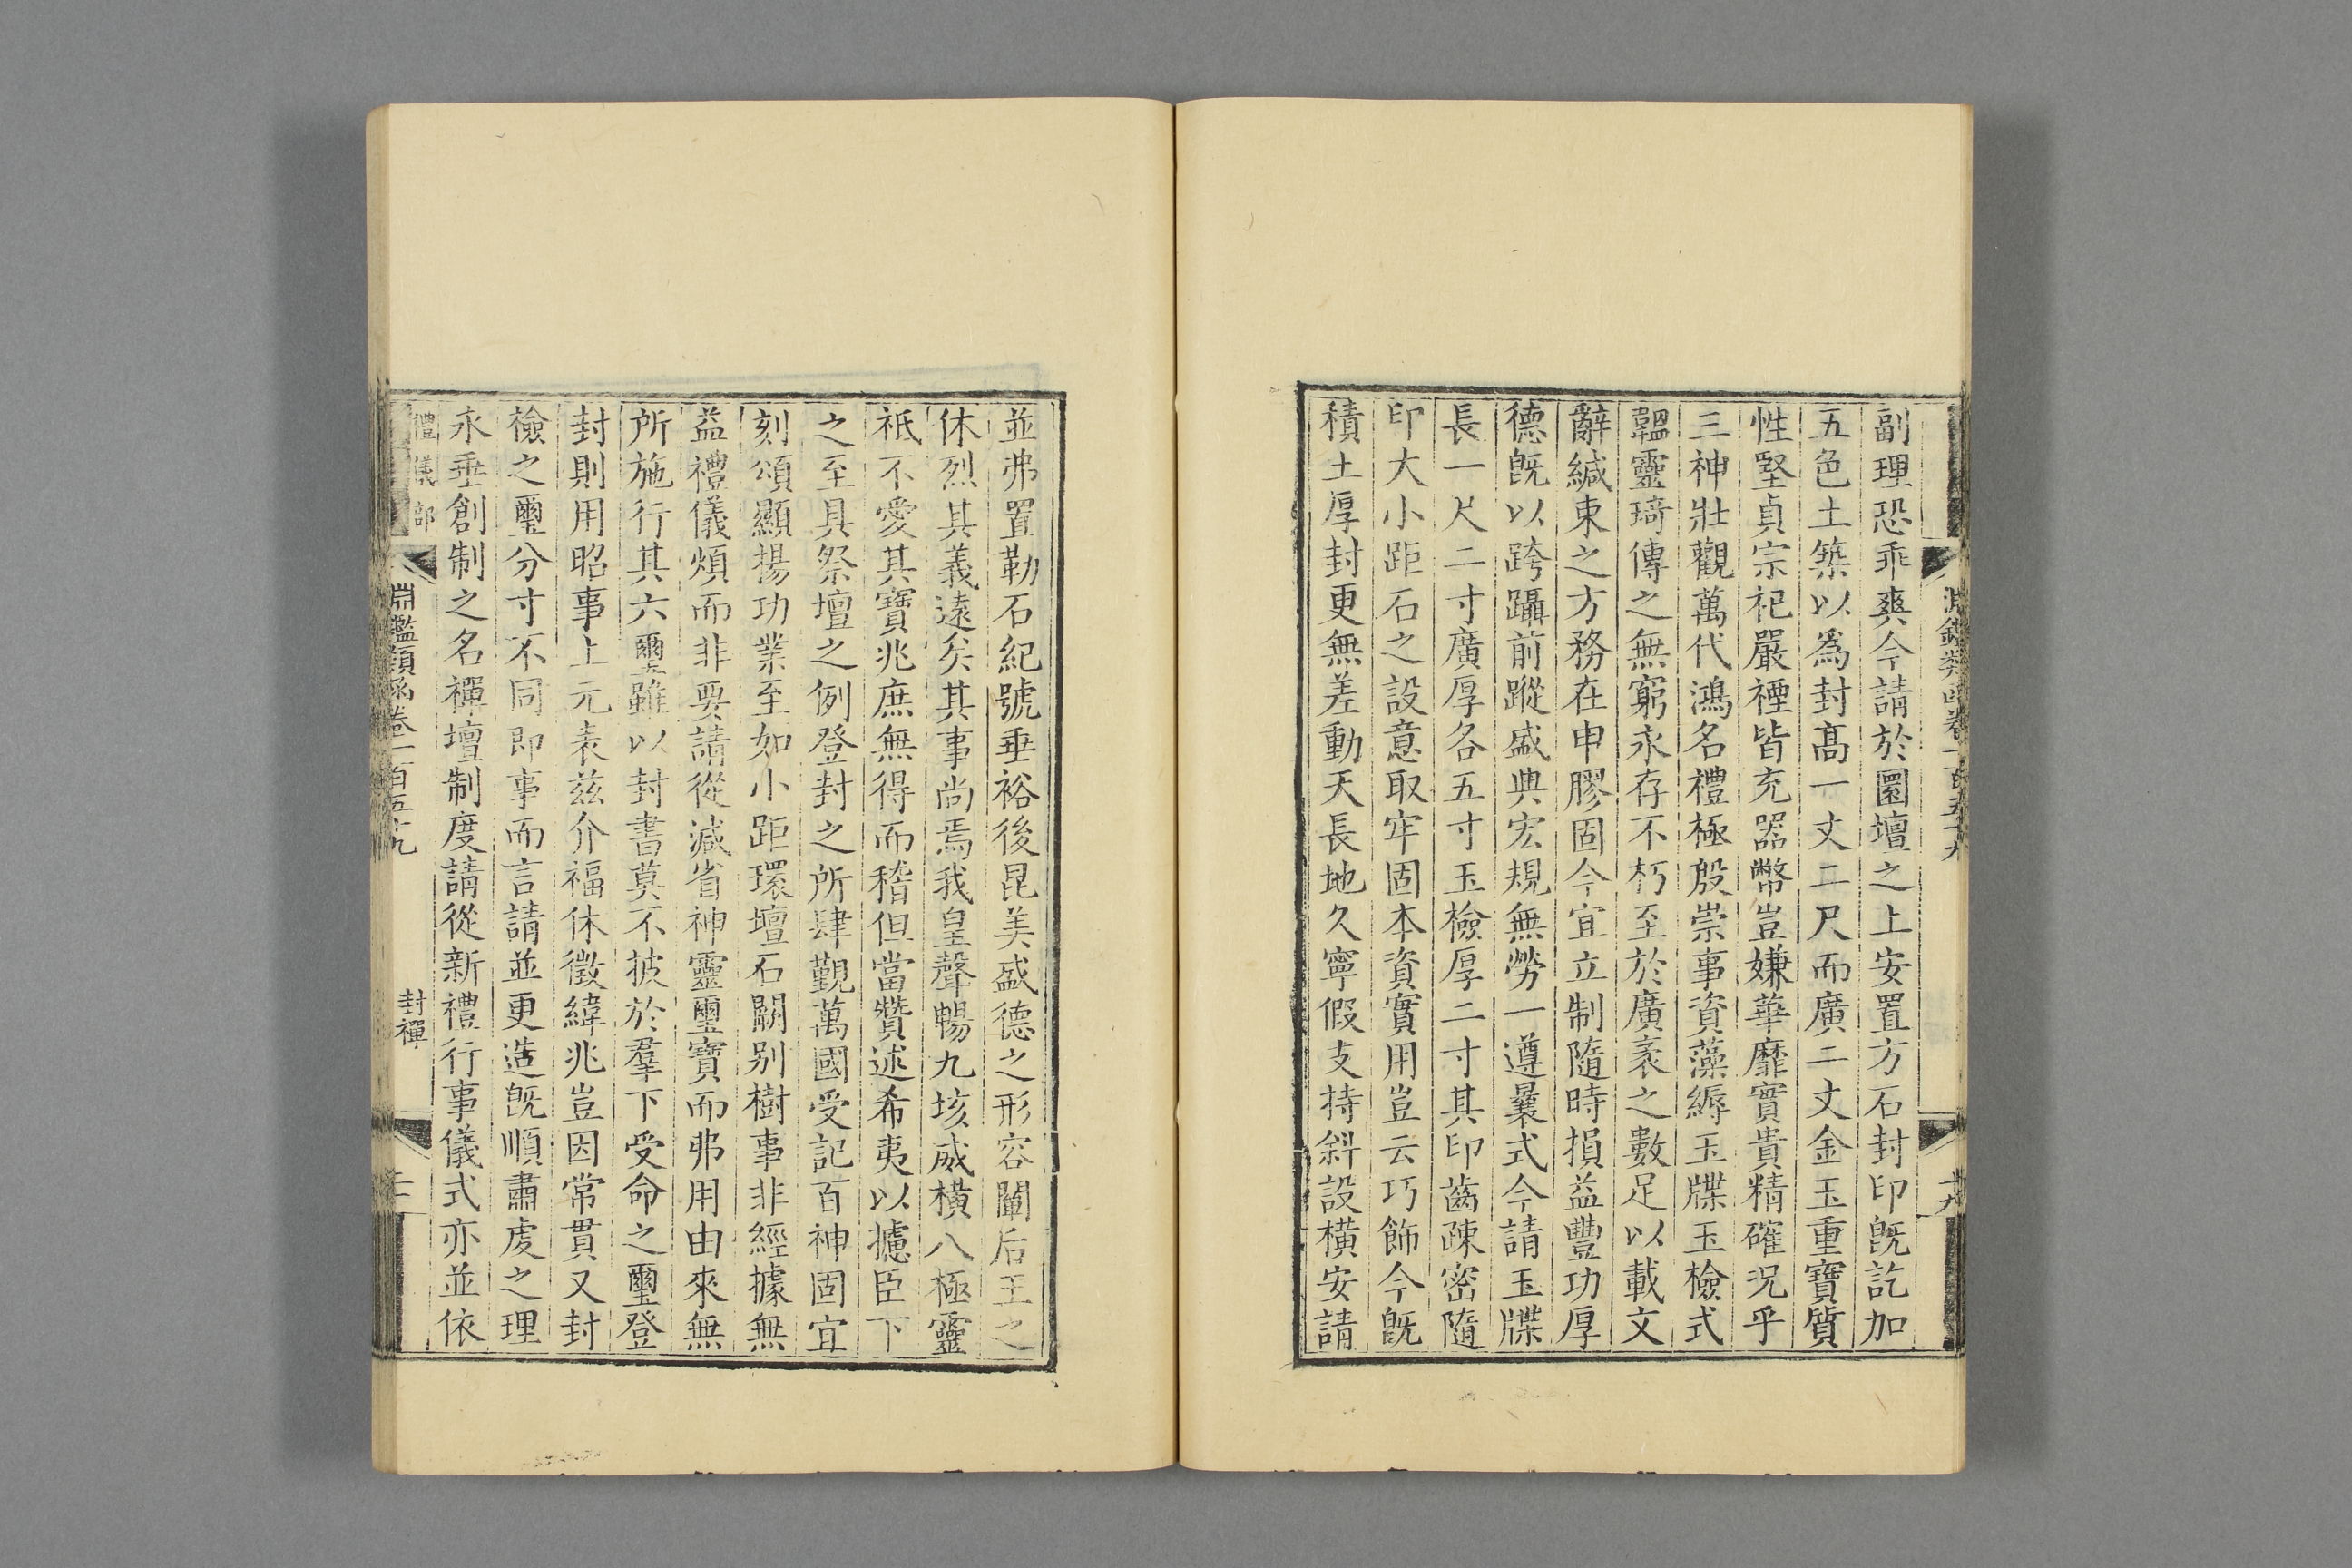 淵鑑類函卷一百五十九
十九
副理恐乖爽今請於圜壇之上安置方石封印旣訖加
五色土築以爲封高一丈二尺而廣二丈金玉重寶質
性堅貞宗祀嚴禋皆充器幣豈嫌華靡實貴精確況乎
三神壯觀萬代鴻名禮極殷崇事資藻縟玉牒玉檢式
韞靈琦傳之無窮永存不朽至於廣袤之數足以載文
辭緘束之方務在申膠固今宜立制隨時損益豐功厚
德旣以跨躡前蹤盛典宏規無勞一遵曩式今請玉牒
長一尺二寸廣厚各五寸玉檢厚二寸其印齒疎密隨
印大小距石之設意取牢固本資實用豈云巧飾今旣
積土厚封更無差動天長地久寧假支持斜設橫安請
並弗置勒石紀號垂裕後昆美盛德之形容闡后王之
休烈其義遠矣其事尚焉我皇聲暢九垓威橫八極靈
祗不愛其寶兆庶無得而稽但當贊述希夷以攄臣下
之至具祭壇之例登封之所肆覲萬國受記百神固宜
刻頌顯揚功業至如小距環壇石闕別樹事非經據無
益禮儀煩而非要請從減省神靈璽寶而弗用由來無
所施行其六璽雖以封書莫不披於羣下受命之璽登
封則用昭事上元表茲介福休徵緯兆豈因常貫又封
檢之璽分寸不同即事而言請並更造旣順肅虔之理
永垂創制之名禪壇制度請從新禮行事儀式亦並依
禮儀部
淵鑑類函卷一百五十九
封禪
二十